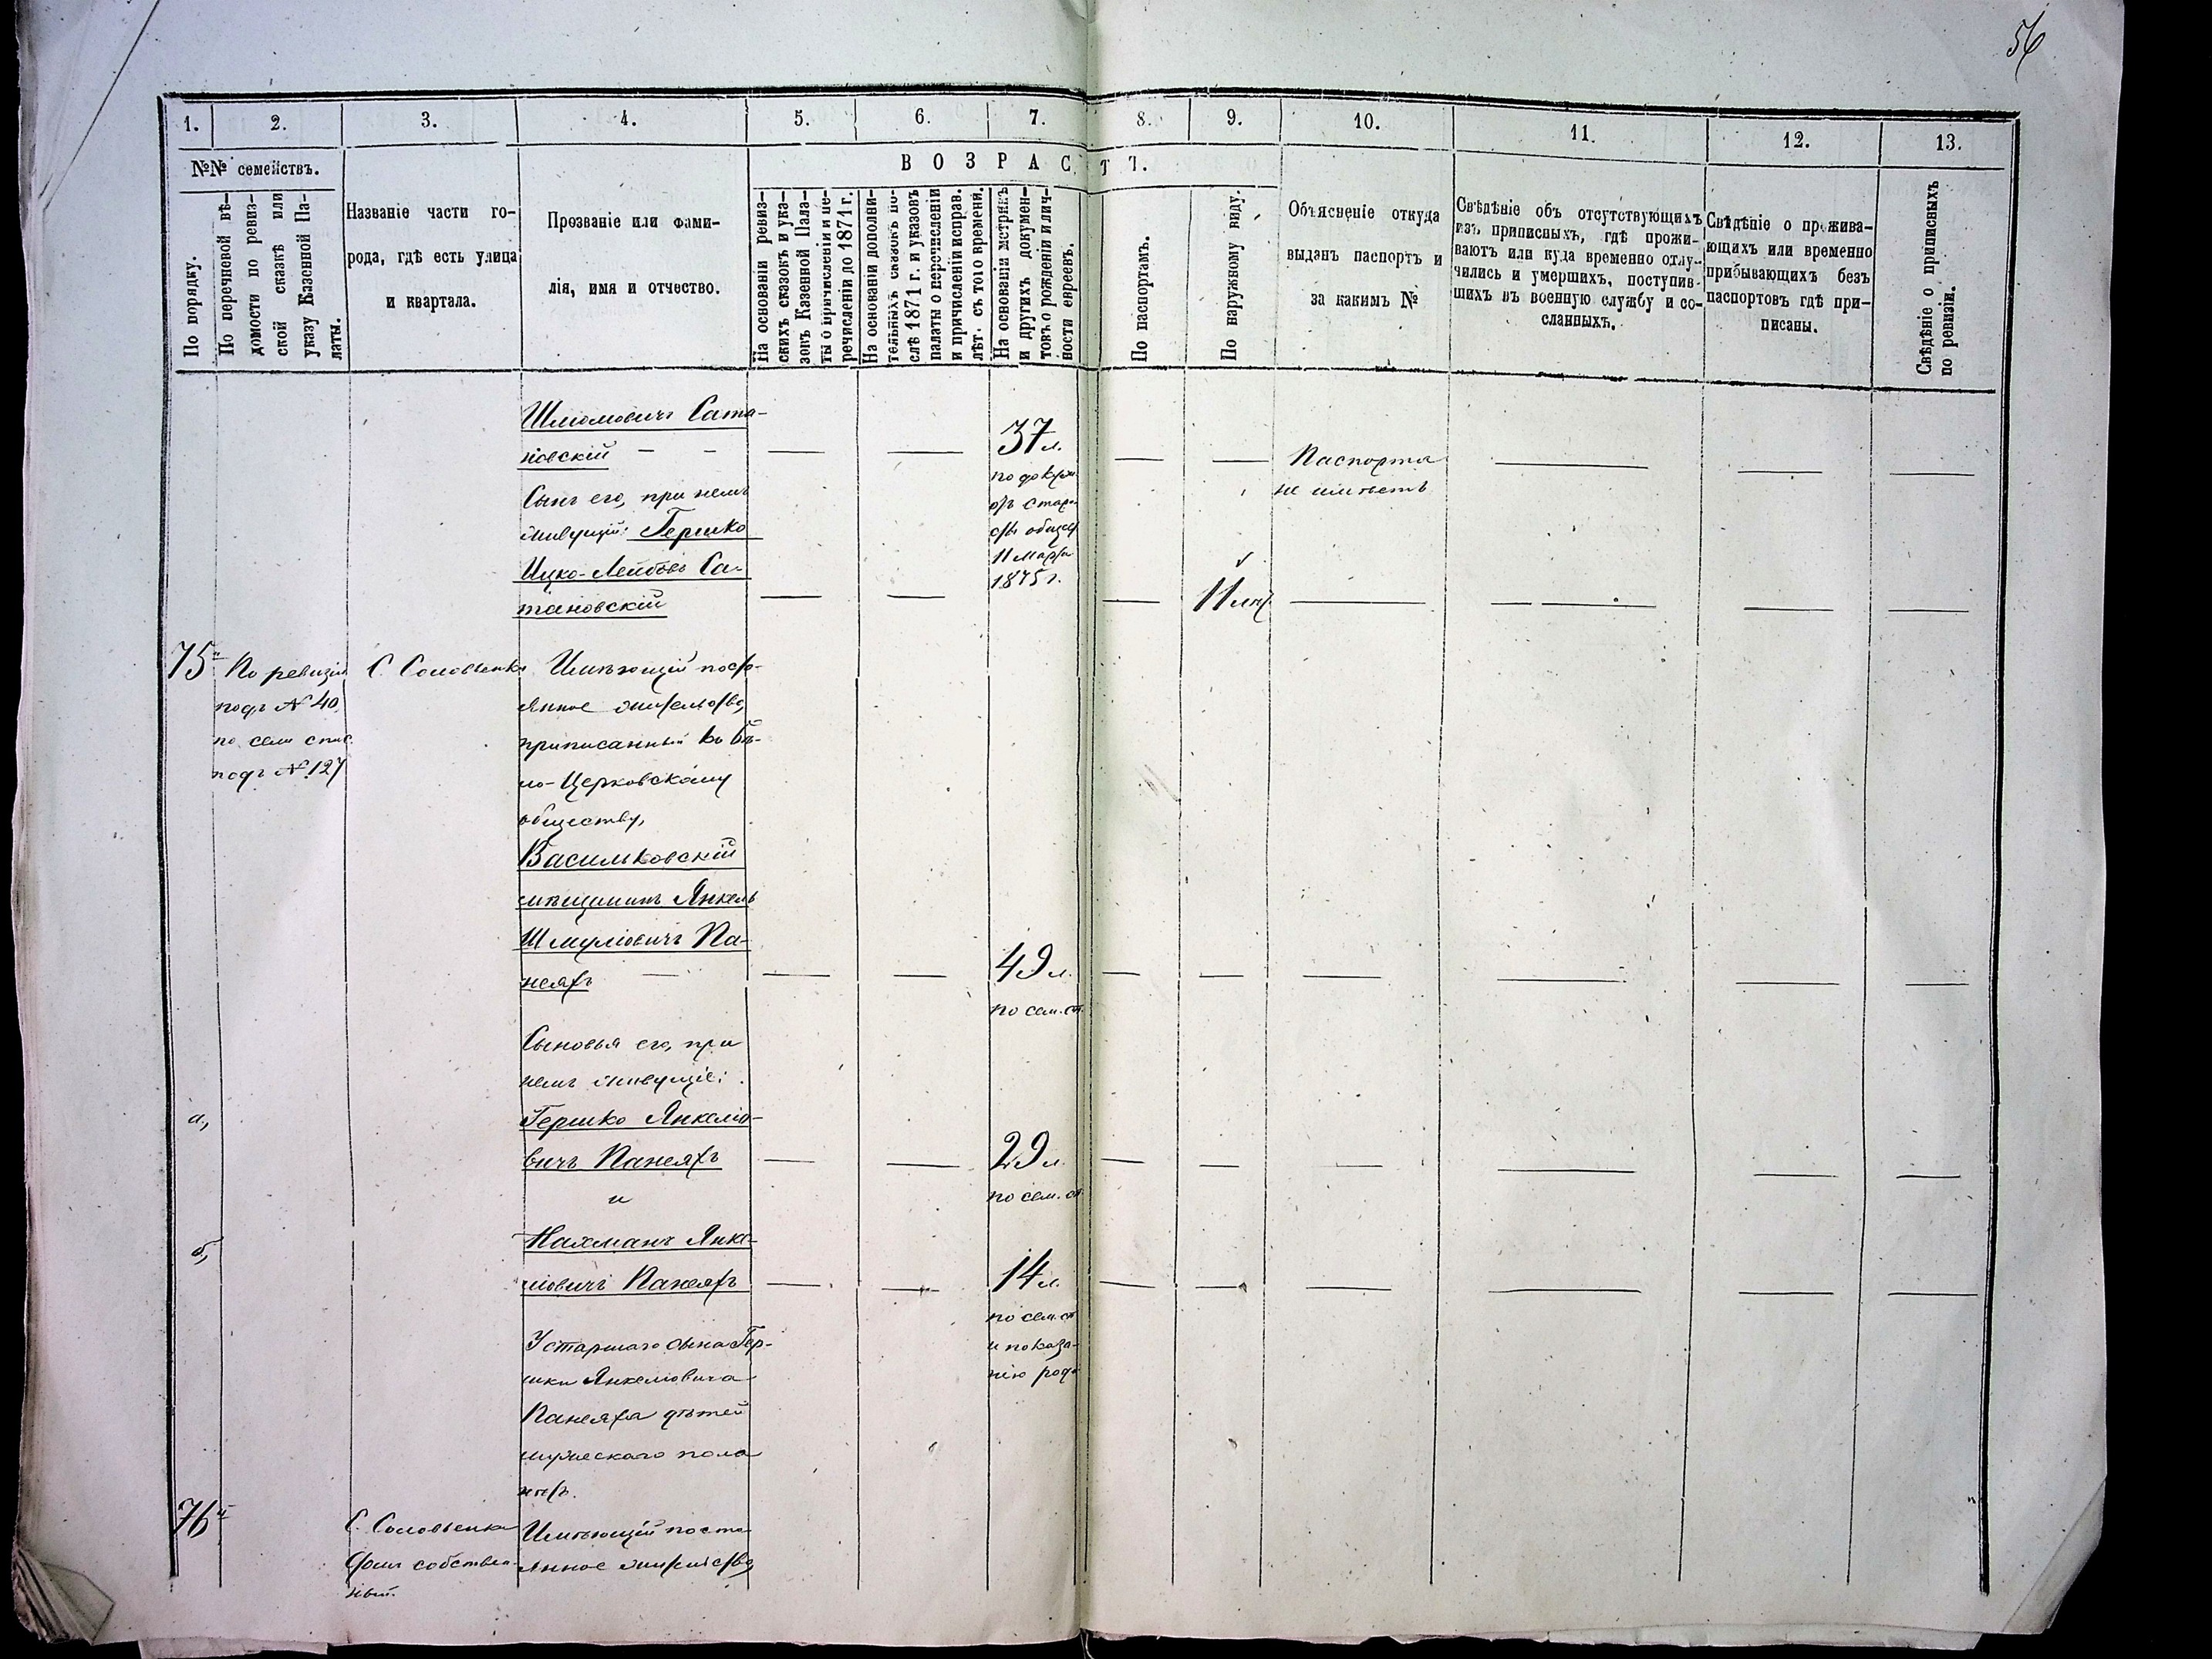 56
1. 2. 3. 4. 5. 6. 7. 8. 9. 10. 11. 12. 13.
№№ семействъ.
ВОЗРАСТЪ.
По порядку.
По перечневой вѣ-
домости по ревиз-
ской сказкѣ или
указу Казенной Па-
латы.
Названіе части го-
рода, гдѣ есть улица
и квартала.
Прозваніе или фами-
лія, имя и отчество.
На основаніи ревиз-
скихъ сказокъ и ука-
зовъ Казенной Пала-
ты о причисленіи и пе-
речисленіи до 1871 г.
На основаніи дополни-
тельныхъ сказокъ по-
слѣ 1871 г. и указовъ
палаты о перечисленіи
и причисленіи исправ.
лѣт. съ того времени.
На основаніи метрикъ
и другихъ докумен-
товъ о рожденіи и лич-
ности евреевъ.
По паспортамъ.
По наружному виду.
Объясненіе откуда
выданъ паспортъ и
за какимъ №
Свѣдѣніе объ отсутствующихъ
изъ приписныхъ, гдѣ прожи-
ваютъ или куда временно отлу-
чились и умершихъ, поступив-
шихъ въ военную службу и со-
сланныхъ.
Свѣдѣніе о прожива-
ющихъ или временно
прибывающихъ безъ
паспортовъ гдѣ при-
писаны.
Свѣдѣніе о приписныхъ
по ревизіи.
Шлиомовичъ Сата-
новскій — —
37 л.
Паспорта
не имѣетъ
Сынъ его, при немъ
живущій: Гершко
Ицко-Лейбовъ Са-
тановскій
по
отъ старо-
сты общест
11 Марта
1875 г.
11 лѣт
75й
По ревизіи
подъ № 40
по сем. спис.
подъ № 127
С. Соловьевка
Имѣющій посто-
янное жительство,
приписанный къ Бѣ-
ло-Церковскому
обществу,
Васильковскій
мѣщанинъ Янкель
Шмуліовичъ Па-
неятъ —
49 л.
по сем. сп.
Сыновья его, при
немъ живущіе:
а,
Гершко Янкеліо-
вичъ Панеятъ
29 л.
по сем. сп.
и
б,
Нахманъ Янке-
ліовичъ Панеятъ
14 л.
по сем. сп
и показа-
нію род.
У старшаго сына Гер-
шки Янкеліовича
Панеята дѣтей
мужескаго пола
нѣтъ.
76й
С. Соловьевка
домъ собствен-
ный.
Имѣющій посто-
янное жительство,